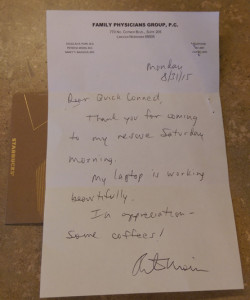 FAMILY PHYSICIANS GROUP, P.C.
Monday
8/31/15
Dear Quick Connect,
Thank you for coming
to my rescue Saturday
morning.
My laptop is working
beautifully.
In appreciation -
Some coffees!
STARBUCKS